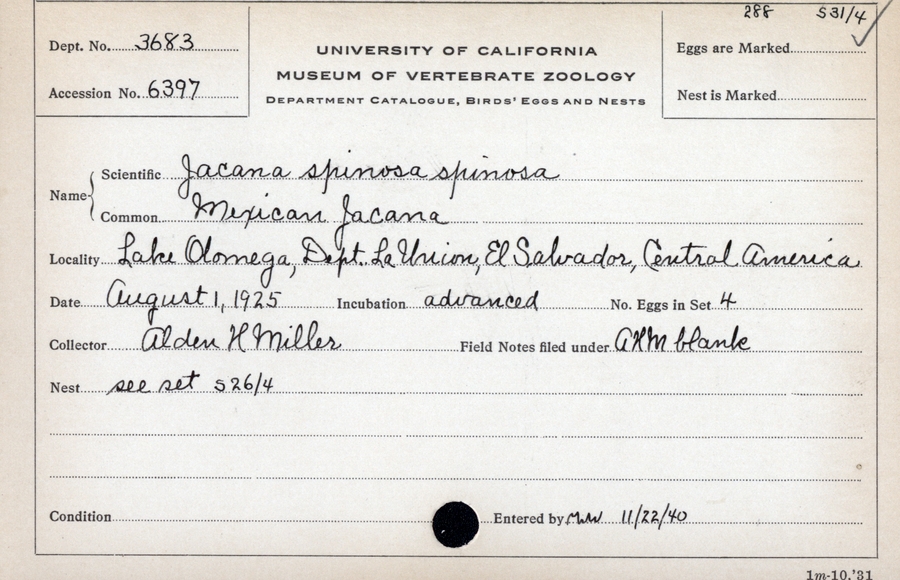 288 S31/4
Dept. No. 3683
UNIVERSITY OF CALIFORNIA
MUSEUM OF VERTEBRATE ZOOLOGY
DEPARTMENT CATALOGUE, BIRDS' EGGS AND NESTS
Eggs are Marked ✓
Accession No. 6397
Nest is Marked
Name { Scientific Jacana spinosa spinosa
Common Mexican Jacana
Locality Lake Olomega, Dept. La Union, El Salvador, Central America
Date August 1, 1925 Incubation advanced No. Eggs in Set 4
Collector Alden H Miller Field Notes filed under AHM blank
Nest see set S26/4
Condition Entered by 11/22/40
1m-10,'31